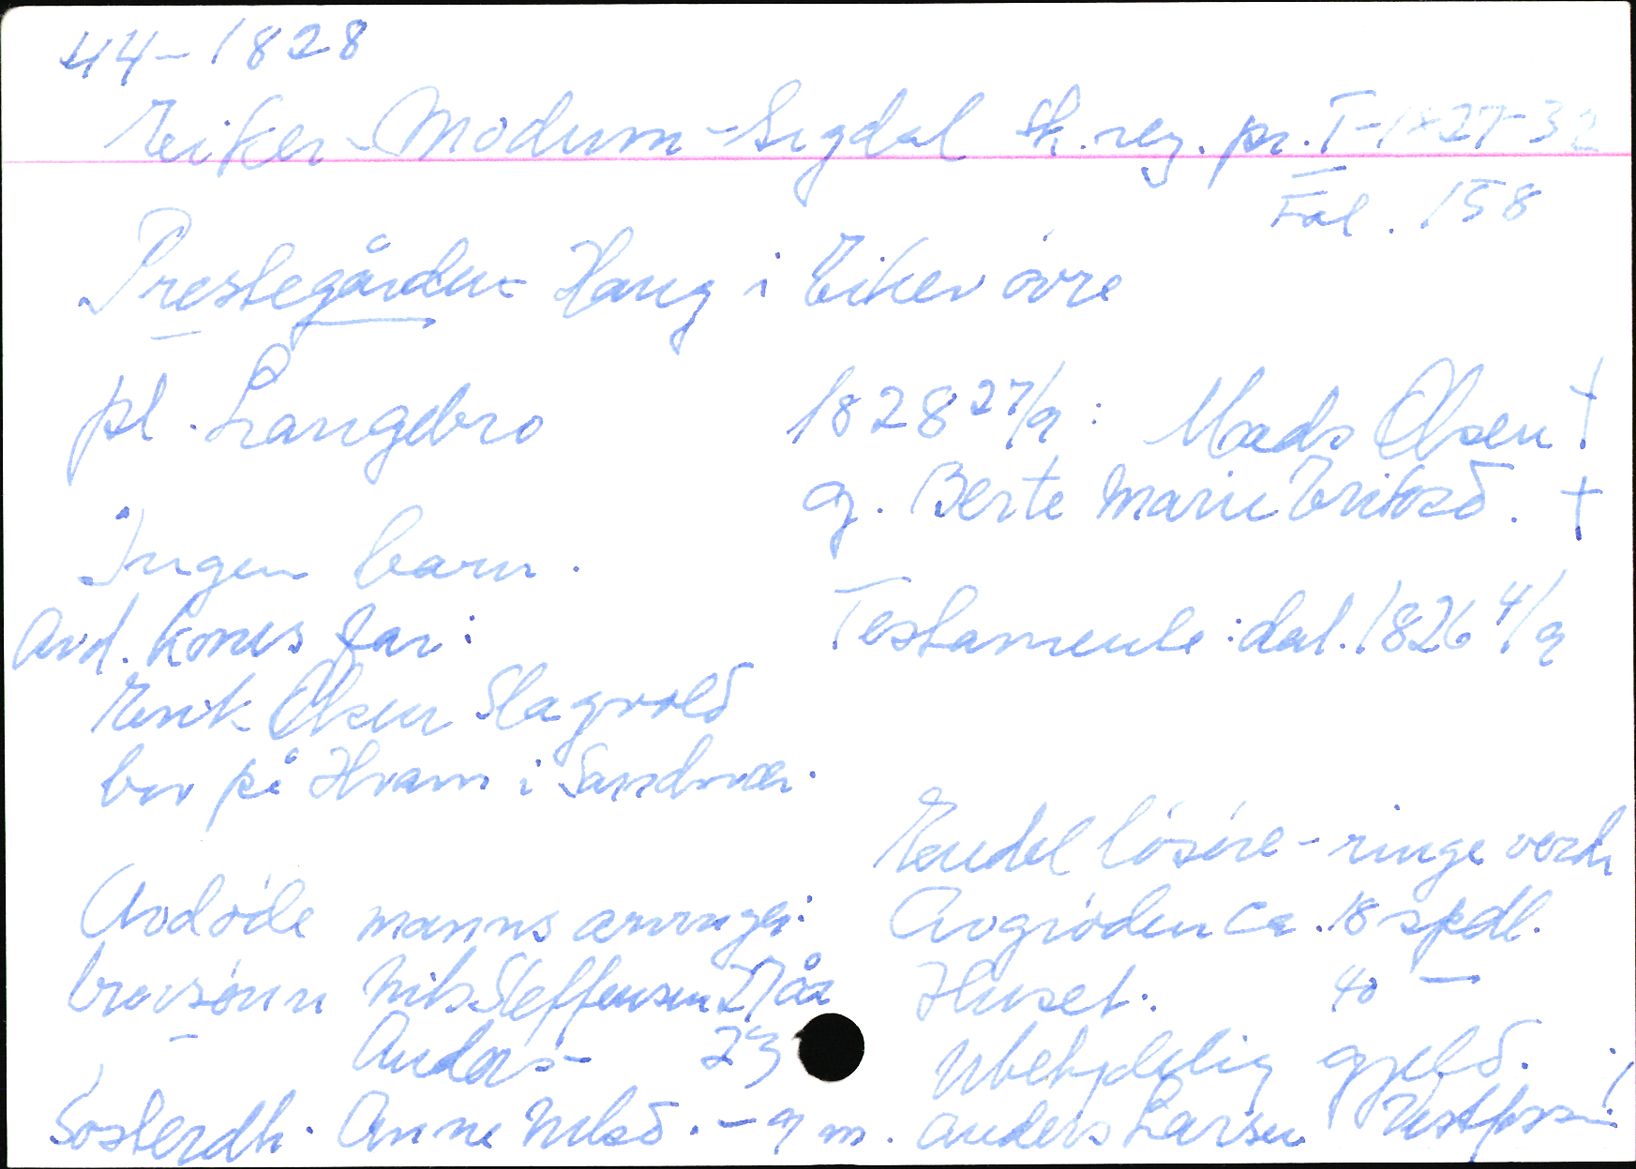 44-1828
Eiker-Modum-Sigdal sk.reg.pr. I-1827-32
Fol. 158
Prestegården Haug i Eiker øvre
pl. Langebro 1828 27/9: Mads Olsen †
g. Berte Marie Eriksd. †
Ingen barn.
Avd. kones far: Testamente: dat. 1826 4/9
Erik Olsen Slagvold
bor på Hvam i Sandsvær.
Endel løsøre - ringe verdi
Avdøde manns arvinger: Avgrøden ca. 18 spdl.
brorsønn Nils Steffensen 27 år Huset: 40 —
— Anders — 23 Ubetydelig gjeld.
Søsterdt. Anne Nilsd. - g m. Anders Larsen Vestfossen!